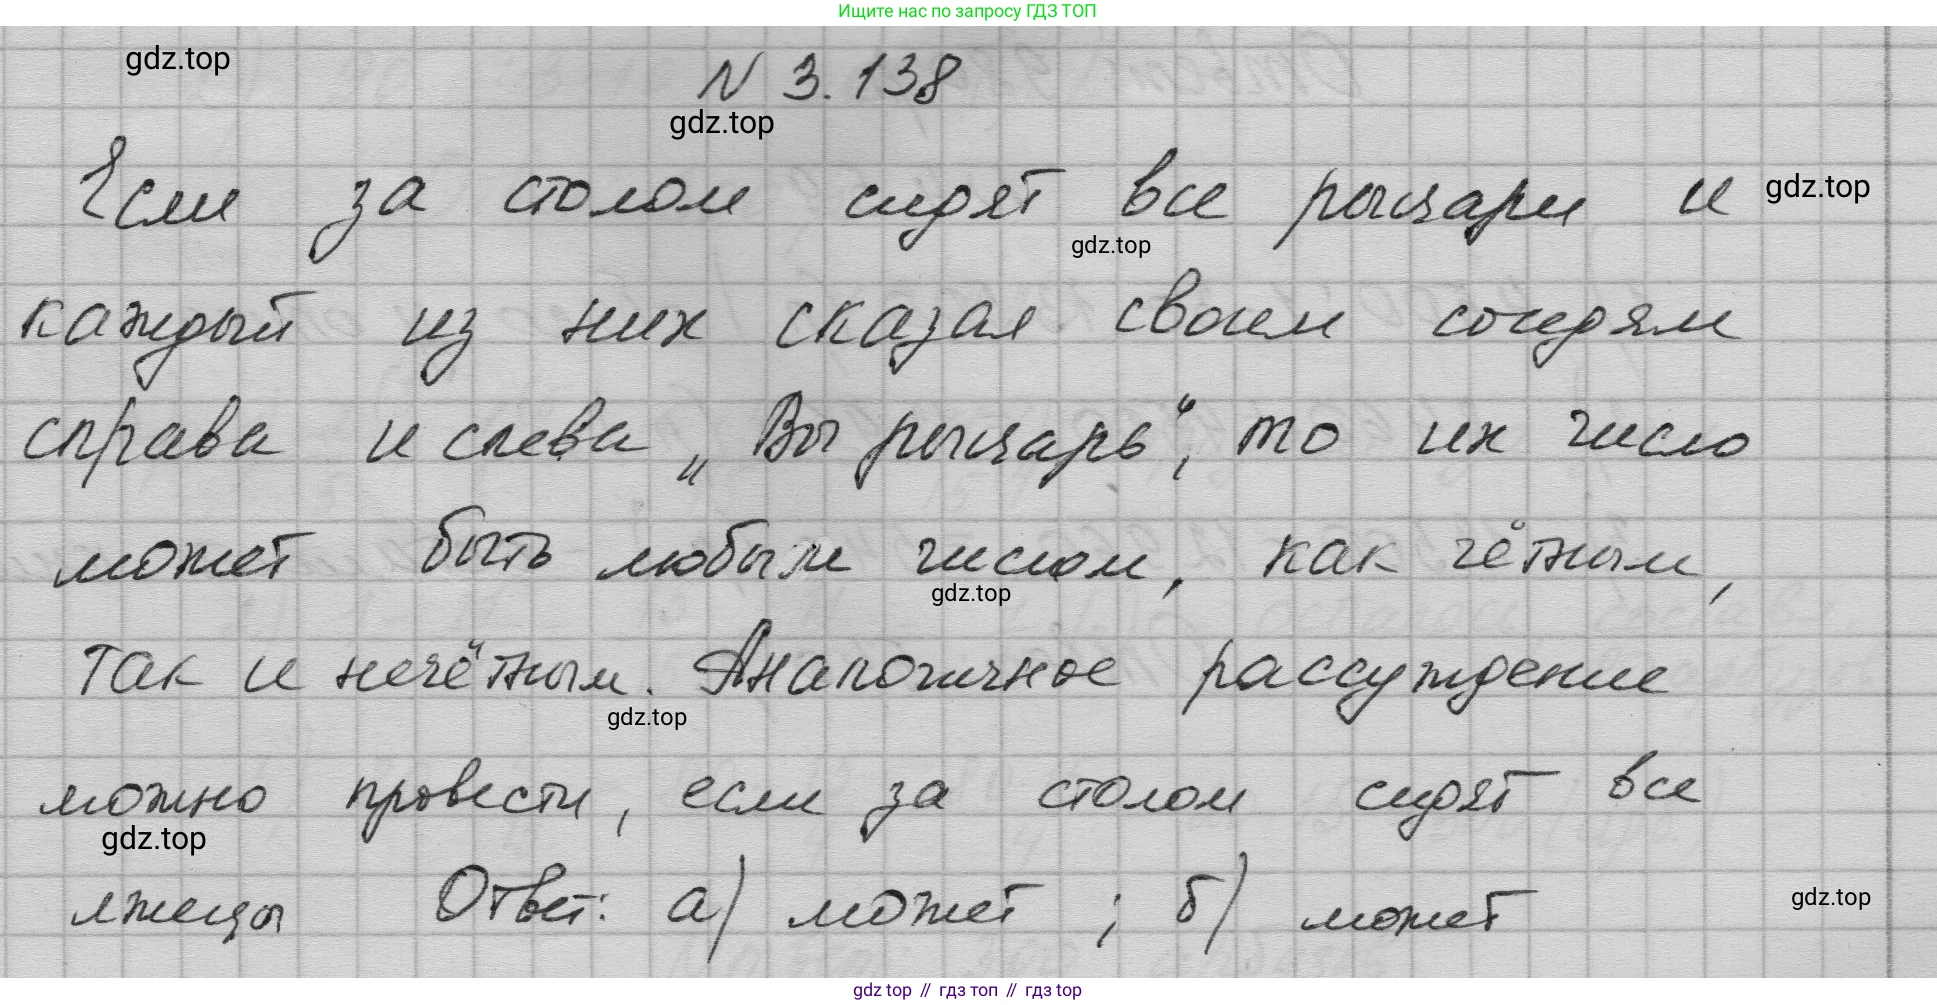 Ищите нас по запросу ГДЗ ТОП
gdz.top
N 3.138
gdz.top
Если за столом сидят все рыцари и
gdz.top
gdz.top
каждый из них сказал своим соседям
справа и слева „Вы рыцарь“, то их число
может быть любым числом, как чётным,
gdz.top
так и нечётным. Аналогичное рассуждение
gdz.top
можно провести, если за столом сидят все
gdz.top
лжецы Ответ: а) может ; б) может
gdz.top
gdz top // гдз топ // гдз top